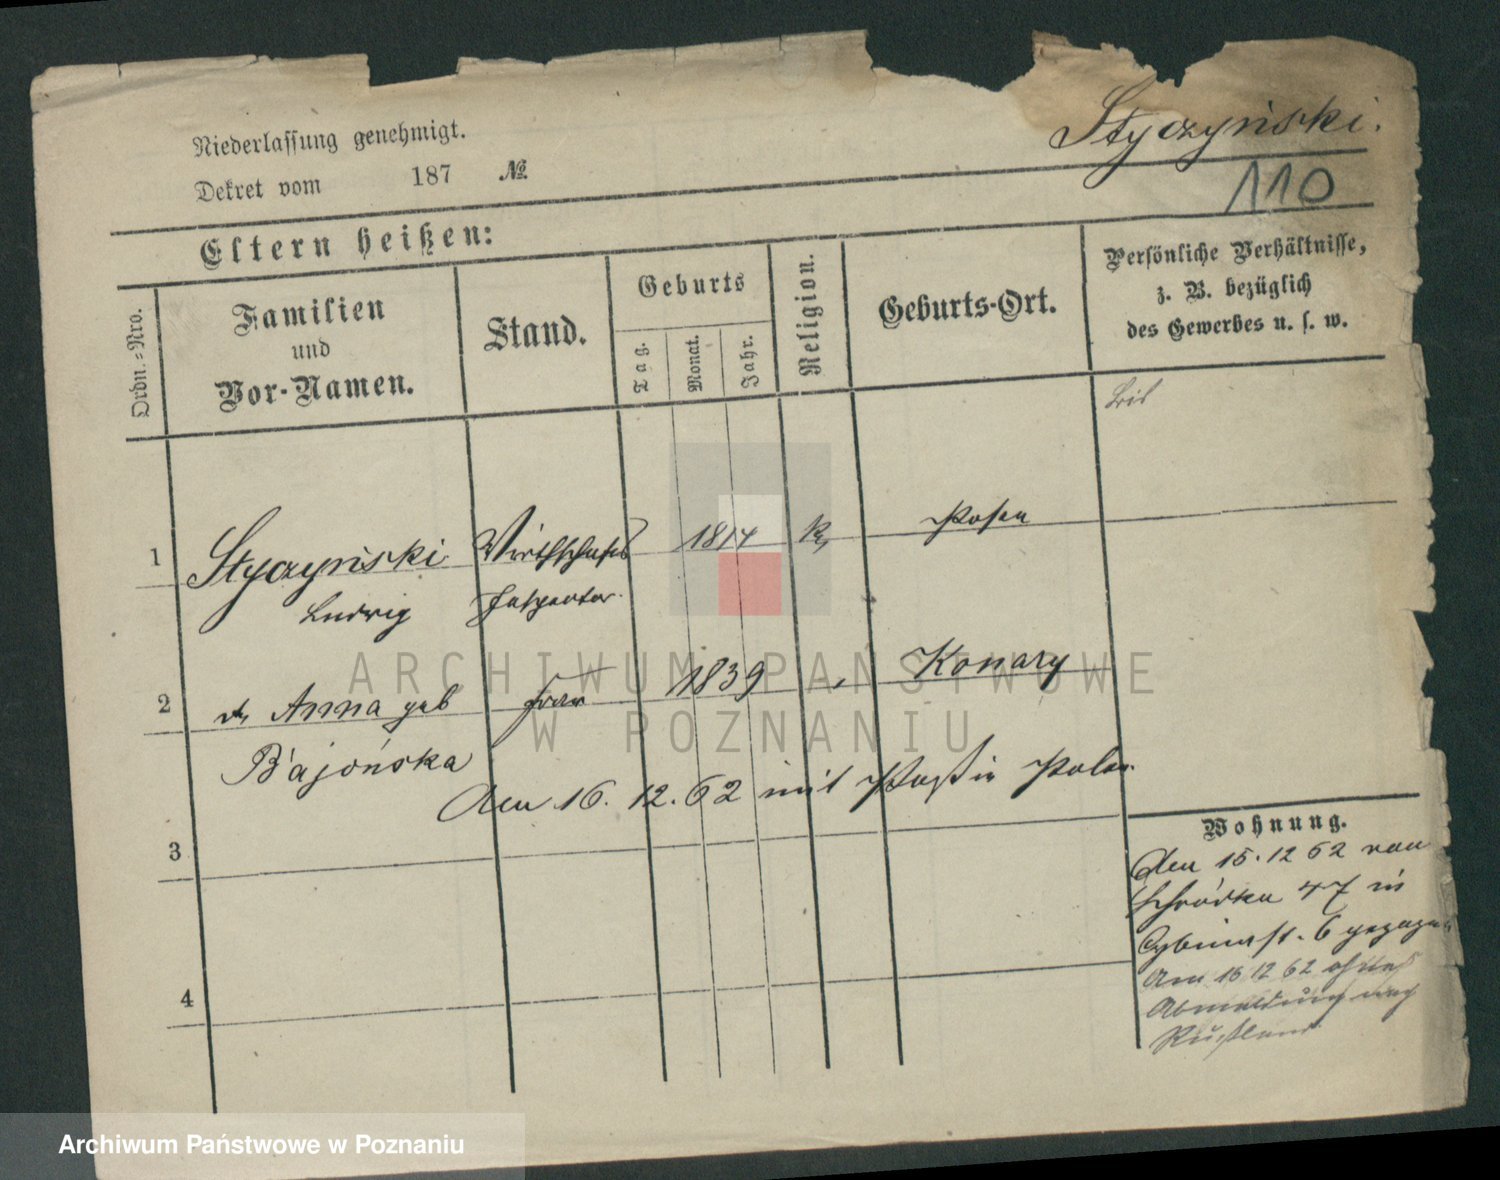 Niederlassung genehmigt.
Dekret vom 187 №
Styczyński.
110
Eltern heißen:
Ordn.-Nro.
Familien
und
Vor-Namen.
Stand.
Geburts
Tag.
Monat.
Jahr.
Religion.
Geburts-Ort.
Persönliche Verhältnisse,
z. B. bezüglich
des Gewerbes u. s. w.
1 Styczyński Wirthschafts 1814 K. Posen
Ludwig Inspector.
2 Anna geb Frau 1839 Konary
Bajońska
den 16. 12. 62 mit Paß in Polen
3
4
Wohnung.
Den 15.12 62 von
Schrodka 47 in
Cybinast. 6 gezogen
Am 16 12 62
Abmeldung nach
Rußland
ARCHIWUM PAŃSTWOWE
W POZNANIU
Archiwum Państwowe w Poznaniu